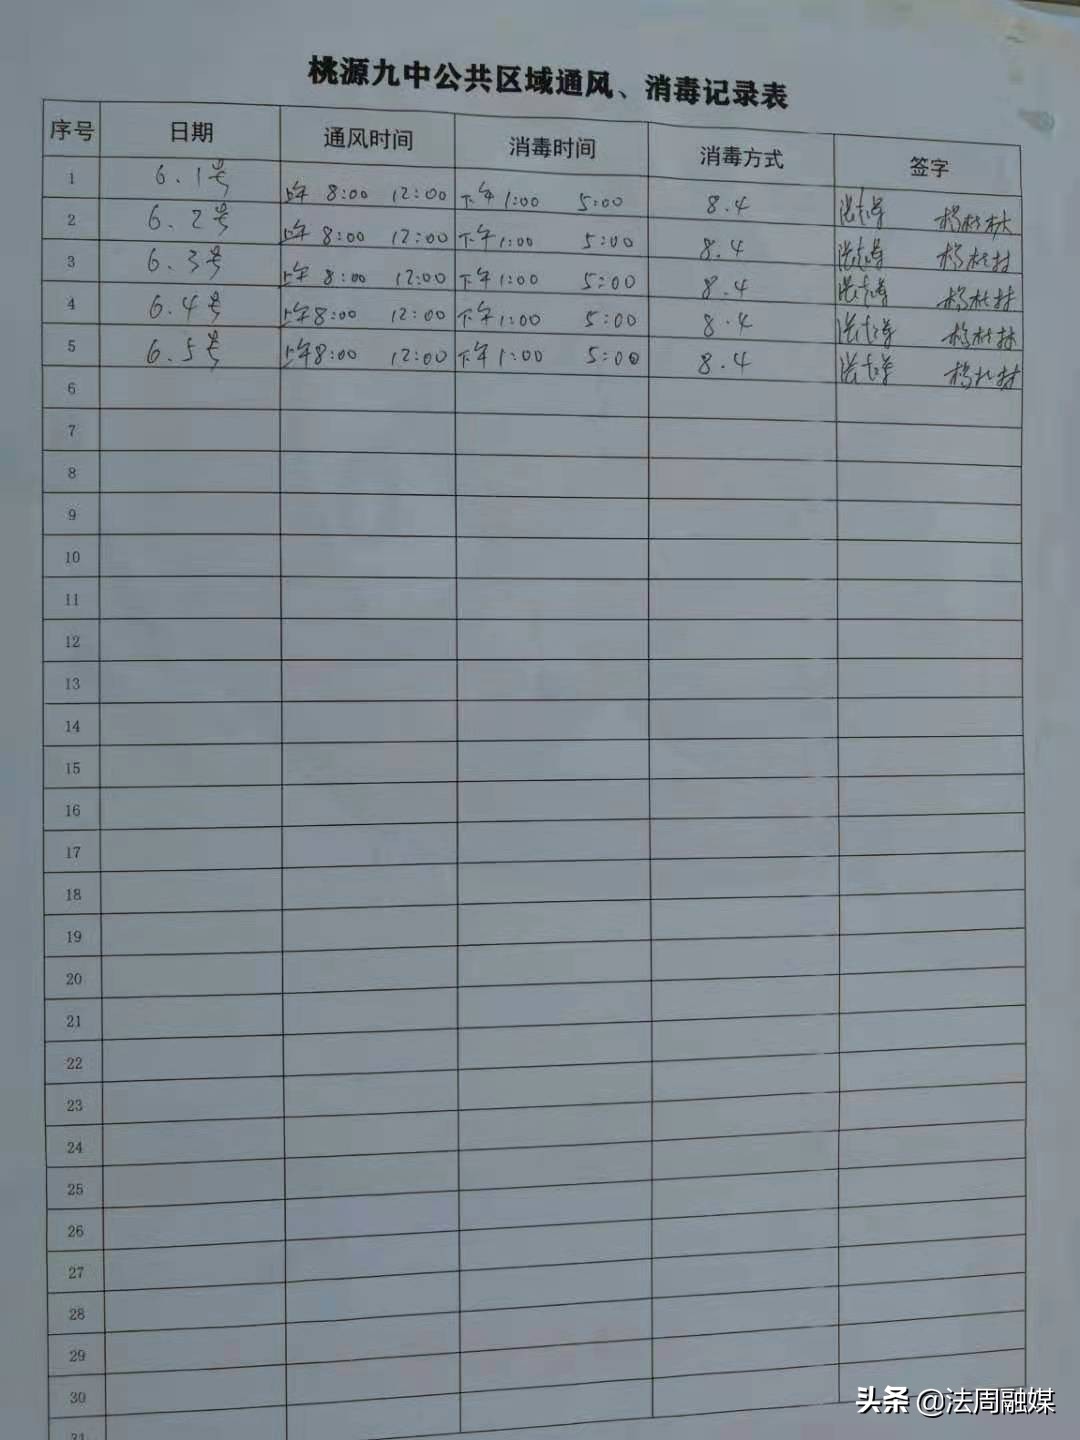 桃源九中公共区域通风、消毒记录表
序号 日期 通风时间 消毒时间 消毒方式 签字
1 6.1号 上午 8:00 12:00 下午 1:00 5:00 8.4
2 6.2号 上午 8:00 12:00 下午 1:00 5:00 8.4
3 6.3号 上午 8:00 12:00 下午 1:00 5:00 8.4
4 6.4号 上午 8:00 12:00 下午 1:00 5:00 8.4
5 6.5号 上午 8:00 12:00 下午 1:00 5:00 8.4
6
7
8
9
10
11
12
13
14
15
16
17
18
19
20
21
22
23
24
25
26
27
28
29
30
31
头条 @法周融媒